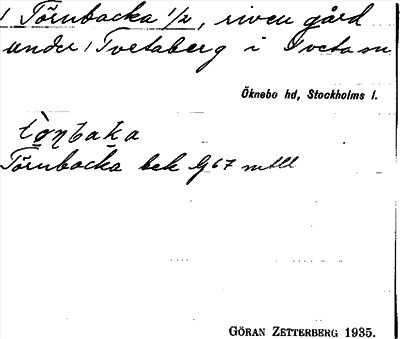 Törnbacka 1/2, riven gård
under Tvetaberg i Tveta sn
Öknebo hd, Stockholms l.
Törnbacka bek G67
GÖRAN ZETTERBERG 1935.